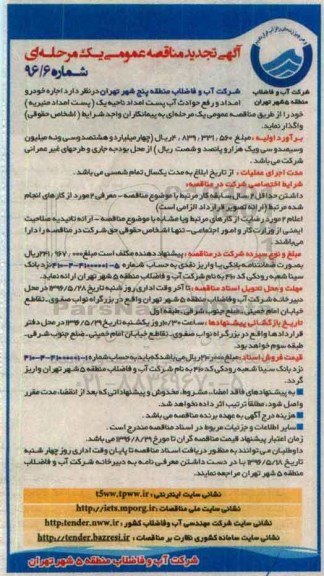 آگهی تجدید مناقصه عمومی یک مرحله‌ای
شماره ۹۶/۶
شرکت آب و فاضلاب
منطقه ۵ شهر تهران
شرکت آب و فاضلاب منطقه پنج شهر تهران در نظر دارد اجاره خودرو
امداد و رفع حوادث آب پست امداد ناحیه یک (پست امداد منیریه)
خود را از طریق مناقصه عمومی یک مرحله‌ای به پیمانکاران واجد شرایط (اشخاص حقوقی)
واگذار نماید.
برآورد اولیه: مبلغ ۴،۸۳۹،۳۳۱،۵۶۰ ریال (چهار میلیارد و هشتصد و سی و نه میلیون
و سیصد و سی و یک هزار و پانصد و شصت ریال) از محل بودجه جاری و طرحهای غیر عمرانی
شرکت می باشد.
مدت اجرای عملیات: از تاریخ ابلاغ به مدت یکسال تمام شمسی می باشد.
شرایط اختصاصی شرکت در مناقصه:
داشتن حداقل ۲ سال سابقه کار مرتبط با موضوع مناقصه - معرفی ۲ مورد از کارهای انجام
شده مرتبط (ارائه تصویر قرارداد الزامی است)
اعلام ۲ مورد رضایت از کارهای مرتبط و یا مشابه با موضوع مناقصه - ارائه تائیدیه صلاحیت
ایمنی از وزارت کار و امور اجتماعی - تنها اشخاص حقوقی حق شرکت در مناقصه را دارا
می باشند.
مبلغ و نوع سپرده شرکت در مناقصه: پیشنهاد دهنده مکلف است مبلغ ۲۴۱،۹۶۷،۰۰۰ ریال
بصورت ضمانتنامه بانکی یا واریز نقدی به حساب شماره نزد بانک
سینا شعبه رودکی کد ۴۱۰ به نام شرکت آب و فاضلاب منطقه ۵ شهر تهران ارائه نماید.
مهلت و محل تحویل اسناد مناقصه: تا آخر وقت اداری روز شنبه تاریخ ۱۳۹۶/۵/۲۸ در محل
دبیرخانه شرکت آب و فاضلاب منطقه ۵ شهر تهران واقع در بزرگراه نواب صفوی، تقاطع
خیابان امام خمینی، ضلع جنوب شرقی، طبقه اول
تاریخ بازگشائی پیشنهادها: ساعت ۱۰/۳۰ روز یکشنبه تاریخ ۱۳۹۶/۵/۲۹ در محل دفتر
قراردادها واقع در بزرگراه نواب صفوی، تقاطع خیابان امام خمینی، ضلع جنوب شرقی،
طبقه سوم خواهد بود.
قیمت فروش اسناد: مبلغ ریال می باشد که باید به حساب شماره
نزد بانک سینا شعبه رودکی کد ۴۱۰ به نام شرکت آب و فاضلاب منطقه ۵ شهر تهران واریز
گردد.
به پیشنهادهای فاقد امضاء، مشروط، مخدوش و پیشنهاداتی که بعد از انقضاء مدت مقرر
واصل شود، مطلقا ترتیب اثر داده نخواهد شد.
هزینه درج آگهی به عهده برنده مناقصه می باشد.
سایر اطلاعات و جزئیات مربوط در اسناد مناقصه مندرج است.
زمان اعتبار پیشنهاد قیمت مناقصه گران تا مورخ ۱۳۹۶/۸/۲۹ می باشد.
داوطلبان می توانند به منظور دریافت اسناد مناقصه تا پایان وقت اداری روز چهارشنبه
تاریخ ۱۳۹۶/۵/۱۸ با در دست داشتن معرفی نامه به دبیرخانه شرکت آب و فاضلاب
منطقه ۵ شهر تهران مراجعه نمایند.
نشانی سایت اینترنتی: t5ww.tpww.ir
نشانی سایت ملی مناقصات: http://iets.mporg.ir
نشانی سایت شرکت مهندسی آب و فاضلاب کشور: http:tender.nww.ir
نشانی سایت سامانه کشوری نظارت بر مناقصات: http://tender.bazresi.ir
شرکت آب و فاضلاب منطقه ۵ شهر تهران